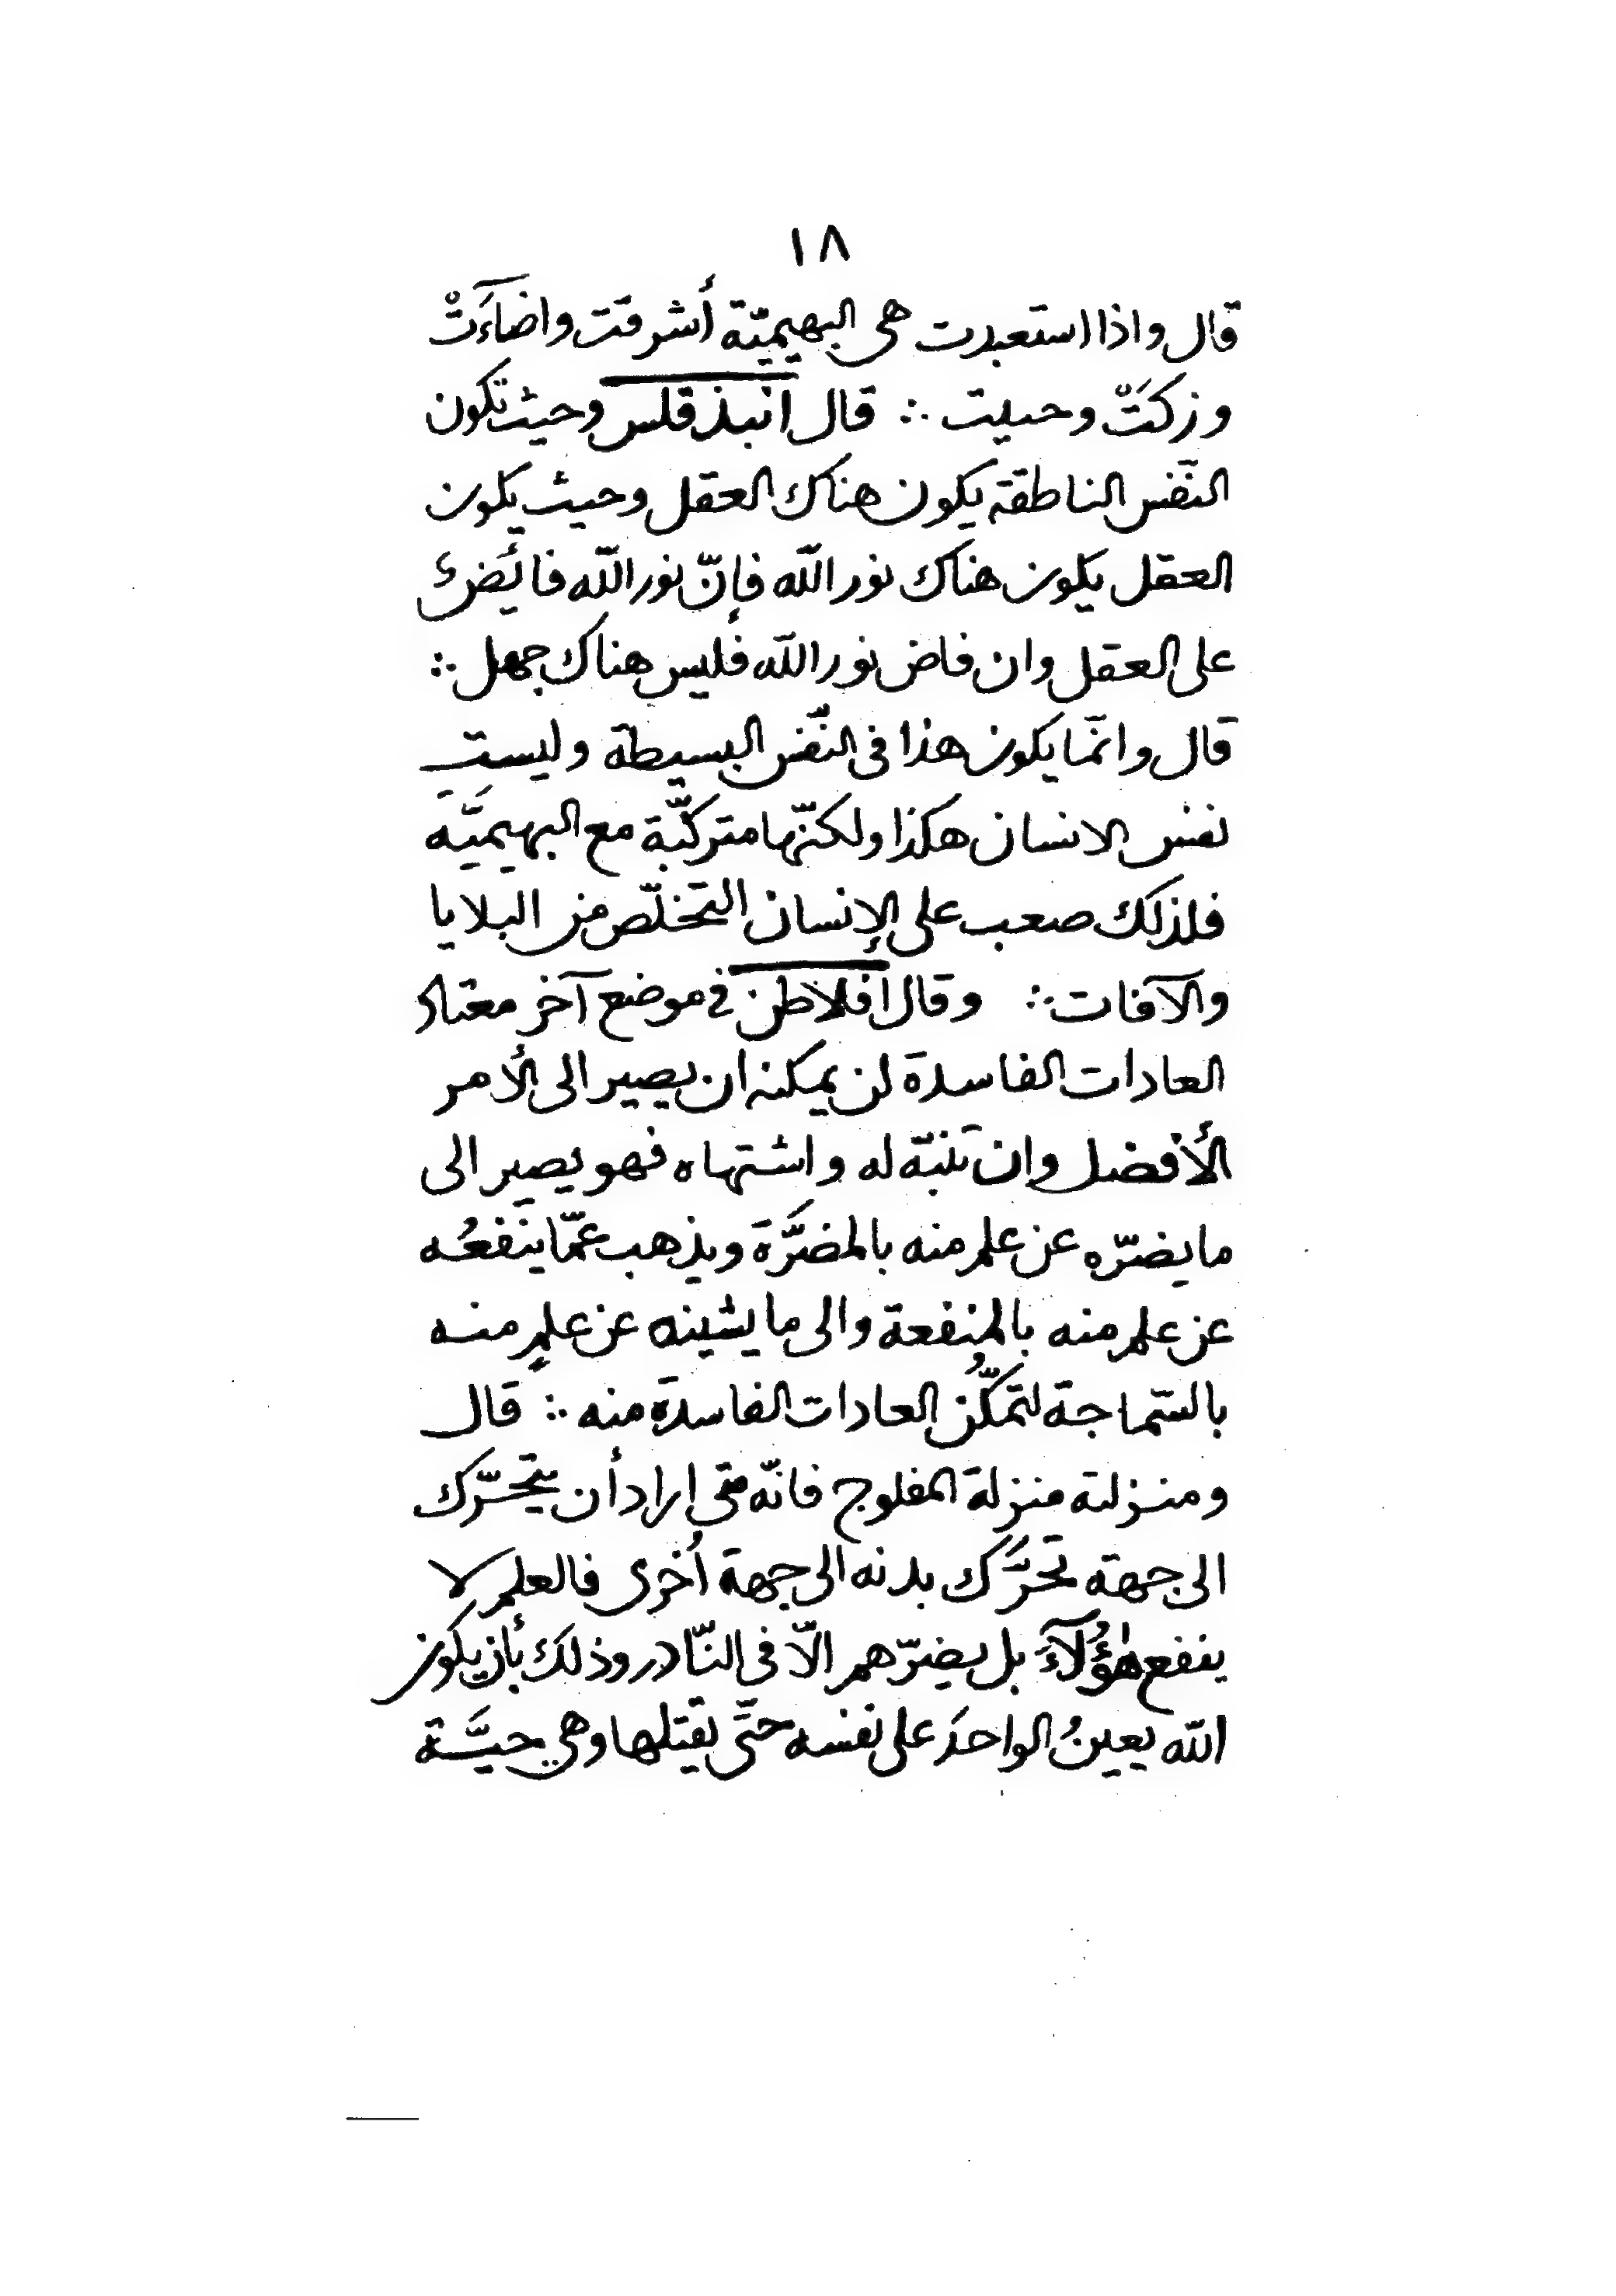 ١٨
قال واذا استعبدت هى البهيميّة أشرقت واضآءَتْ
وزكَتْ وحييت ∴ قال انبذقلس وحيث تكون
النّفس الناطقة يكون هناك العقل وحيث يكون
العقل يكون هناك نور الله فإنّ نور الله فائِض
على العقل وان فاض نور الله فليس هناك جهل ∴
قال وانّما يكون هذا فى النّفس البسيطة وليست
نفس الانسان هكذا ولكنّها متركّبة مع البهيميّة
فلذلك صعب على الإنسان التخلّص من البلايا
والآفات ∴ وقال افلاطن فى موضع آخر معتاد
العادات الفاسدة لن يمكنه ان يصير الى الأمر
الأفضل وان تنبّه له واشتهاه فهو يصير الى
ما يضرّه عن علم منه بالمضرَّة ويذهب عمّا ينفعُه
عن علم منه بالمنفعة والى ما يشينه عن علمٍ منه
بالسّماجة لتمكّن العادات الفاسدة منه ∴ قال
ومنزلته منزلة المفلوج فانّه متى اراد أن يتحرّك
الى جهة تحرَّك بدنه الى جهة أخرى فالعلم لا
ينفع هٰؤُلآءِ بل يضرّهم الّا فى النّادر وذلك بأن يكون
الله يعينُ الواحدَ على نفسه حتّى يقتلها وهي حيَّة